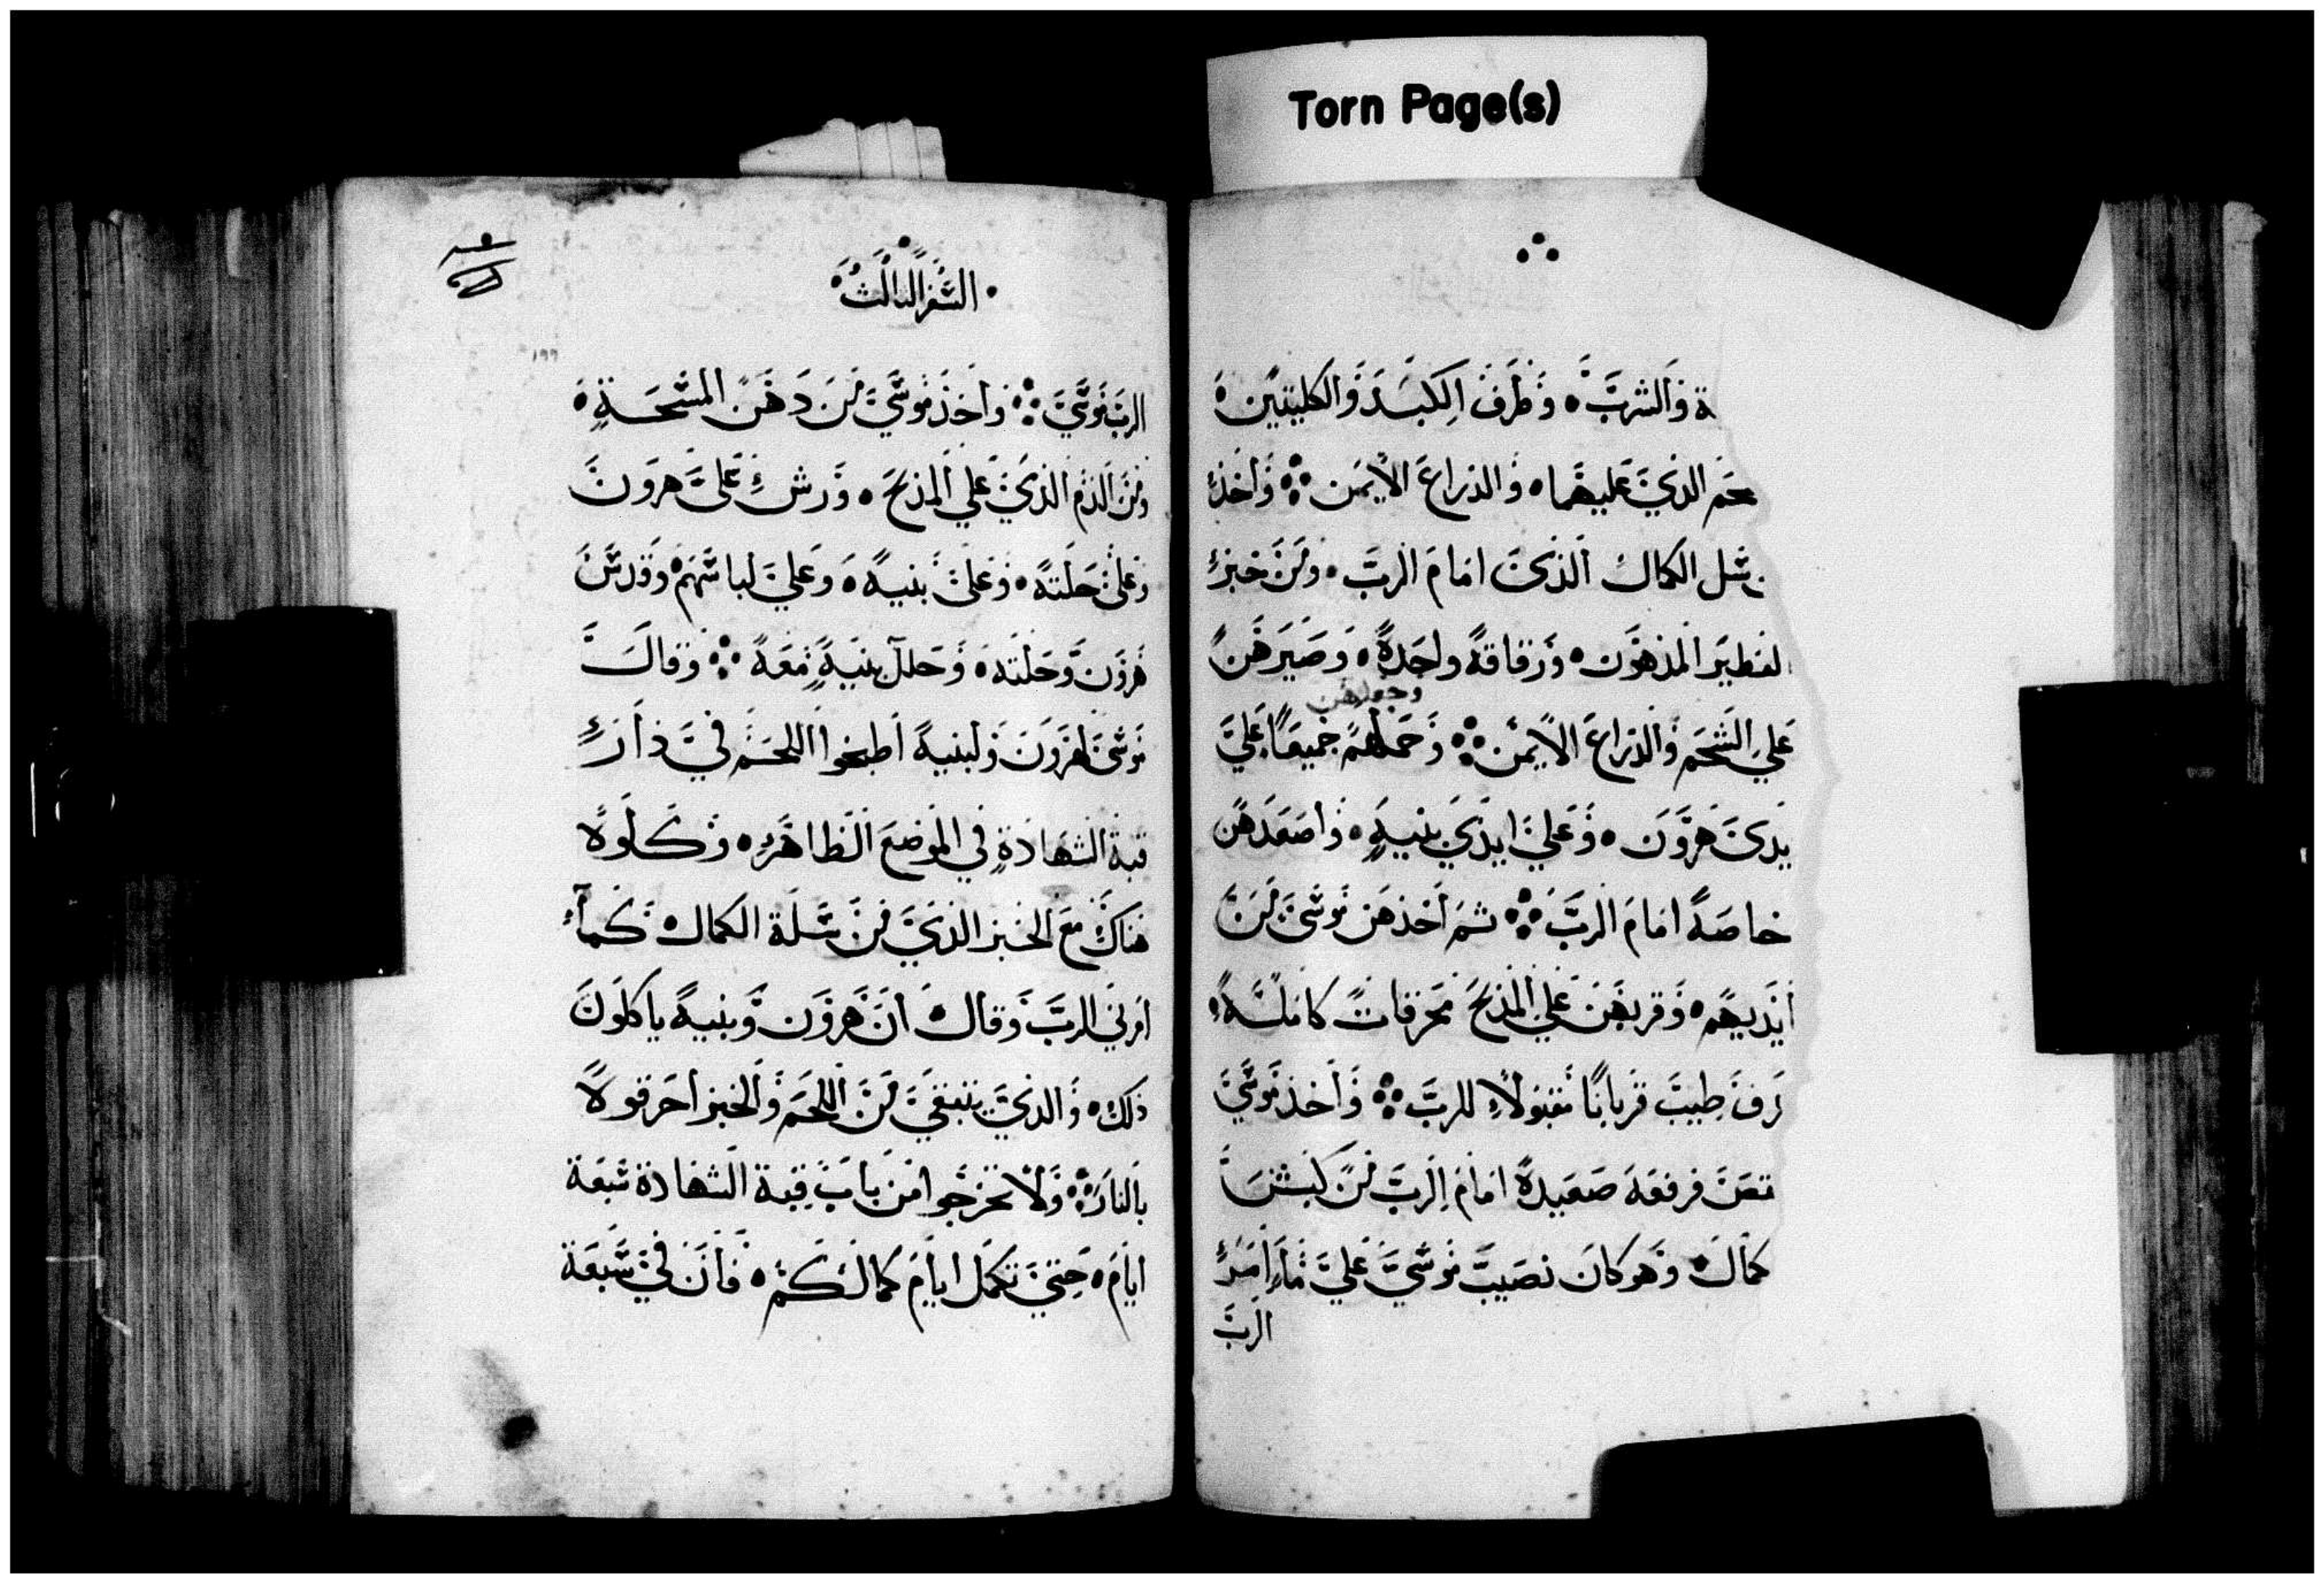 Torn Page(s)
ة والشرب ۰ وطرف الكبد والكليتين ۰
حم الذي عليهما ۰ والذراع الايمن ܀ واخذ
سل الكمال الذي امام الرب ۰ ومن خبز
لفطير المدهون ۰ ورقاقة واحدة ۰ وصيرهن
وجعلهن
علي الشحم والذراع الايمن ܀ وحملهم جميعا علي
يدي هرون ۰ وعلي ايدي بنيه ۰ واصعدهن
خاصة امام الرب ܀ ثم اخذهن موسي من
ايديهم ۰ وقربهن علي المذبح محرقات كاملة
رف طيب قربانا مقبولا للرب ܀ واخذ موسي
فرفعه صعيدة امام الرب من كبش
كمال ۰ وهو كان نصيب موسي علي ما امر
الرب
السفر الثالث
١٩٩
الرب موسي ܀ واخذ موسي من دهن المسحة ۰
ومن الدم الذي علي المذبح ۰ ورش علي هرون
وعلي حلته ۰ وعلي بنيه ۰ وعلي لباسهم ۰ وقدس
هرون وحلته ۰ وحلل بنيه معه ܀ وقال
موسي لهرون ولبنيه اطبخوا اللحم في دار
قبة الشهادة في الموضع الظاهر ۰ وكلوه
هناك مع الخبز الذي من سلة الكمال ۰ كما
امرني الرب وقال ۰ ان هرون وبنيه ياكلون
ذلك ۰ والذي يتبقي من اللحم والخبز احرقوه
بالنار ܀ ولا تخرجوا من باب قبة الشهادة سبعة
ايام ۰ حتي تكمل ايام كمالكم ۰ فان في سبعة